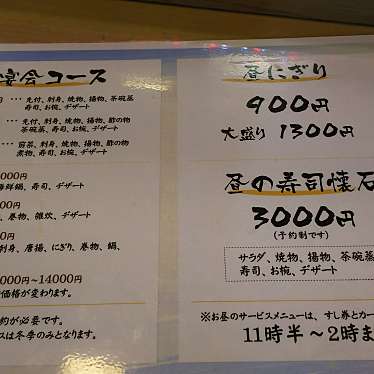 宴会コース
… 先付、刺身、焼物、揚物、茶碗蒸
寿司、お椀、デザート
… 先付、刺身、焼物、揚物、酢の物
茶碗蒸、寿司、お椀、デザート
… 前菜、刺身、焼物、揚物、酢の物
煮物、寿司、お椀、デザート
000円
海鮮鍋、寿司、デザート
円
、巻物、雑炊、デザート
円
刺身、唐揚、にぎり、巻物、鍋、
000円～14000円
価格が変わります。
約が必要です。
スは冬季のみとなります。
昼にぎり
900円
大盛り 1300円
昼の寿司懐石
3000円
(予約制です)
サラダ、焼物、揚物、茶碗蒸
寿司、お椀、デザート
※お昼のサービスメニューは、すし券とカー
11時半～2時ま